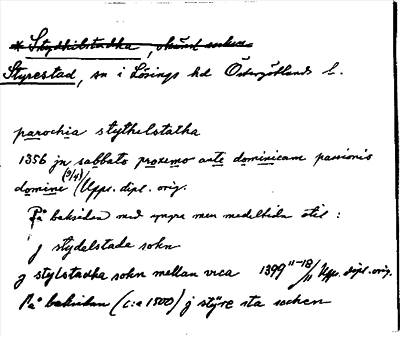 * Stydhilstadha, okänt socken
Styrestad, sn i Lösings hd Östergötlands l.
parochia stythelstatha
1356 jn sabbato proxemo ante dominicam passionis
domine (9/4) / Upps. dipl. orig.
På baksidan med yngre men medeltida stil :
j stydelstada sokn
j stylstadha sokn mellan vica 1399 11-18/11 Upps. dipl. orig.
På baksidan (c:a 1500) j styre sta sochen